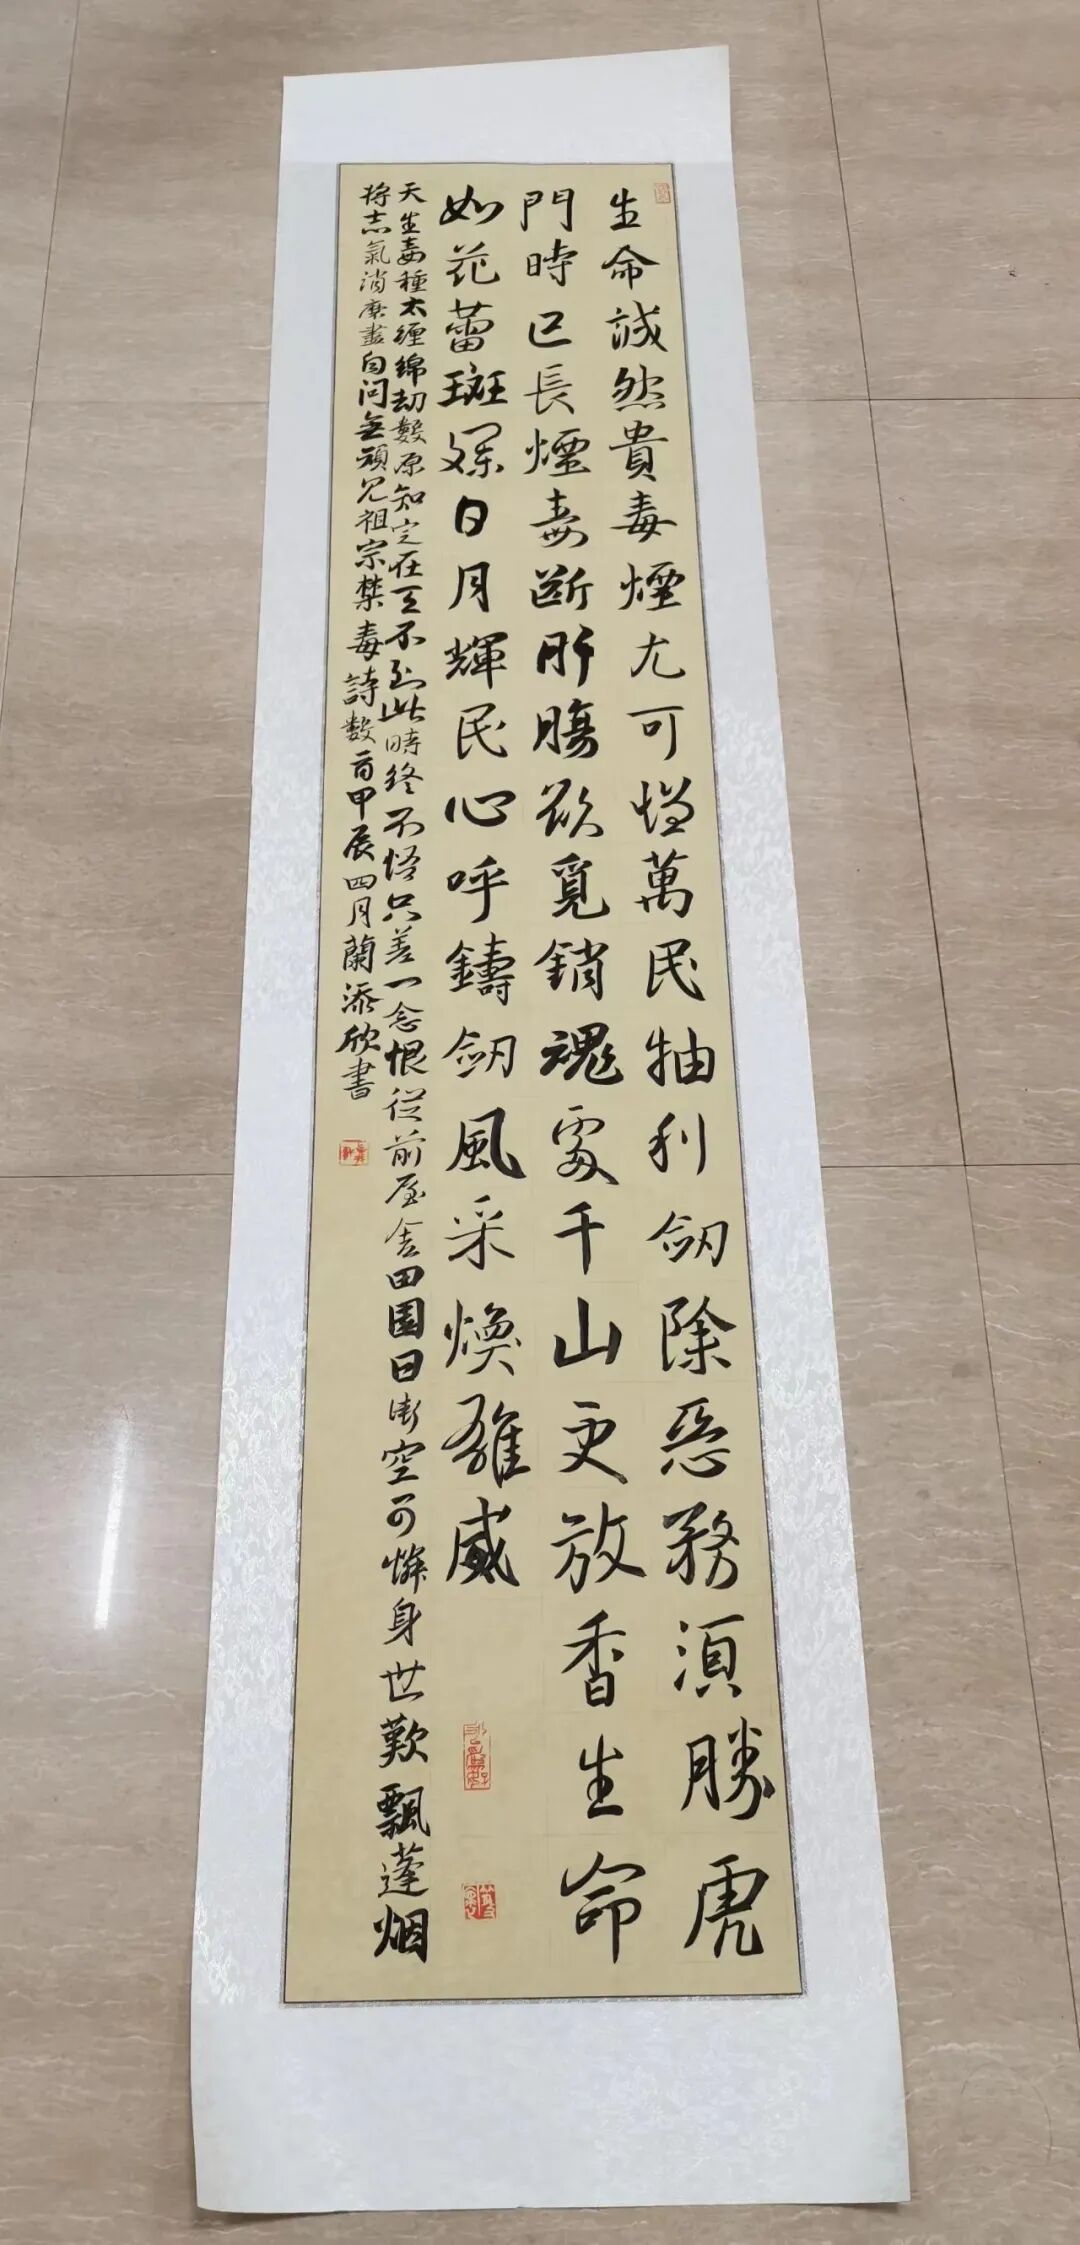 生命誠然貴毒煙尤可憎萬民抽利劒除惡務須勝虎
門時已長煙毒斷肝腸欲覓銷魂處千山更放香生命
如花蕾斑斕日月輝民心呼鑄劒風采煥雄威
天生毒種太纏綿劫數原知定在天不到此時終不悟只差一念恨從前屋舍田園日漸空可憐身世歎飄蓬烟
將志氣消磨盡自問無顏見祖宗禁毒詩數首甲辰四月蘭添欣書